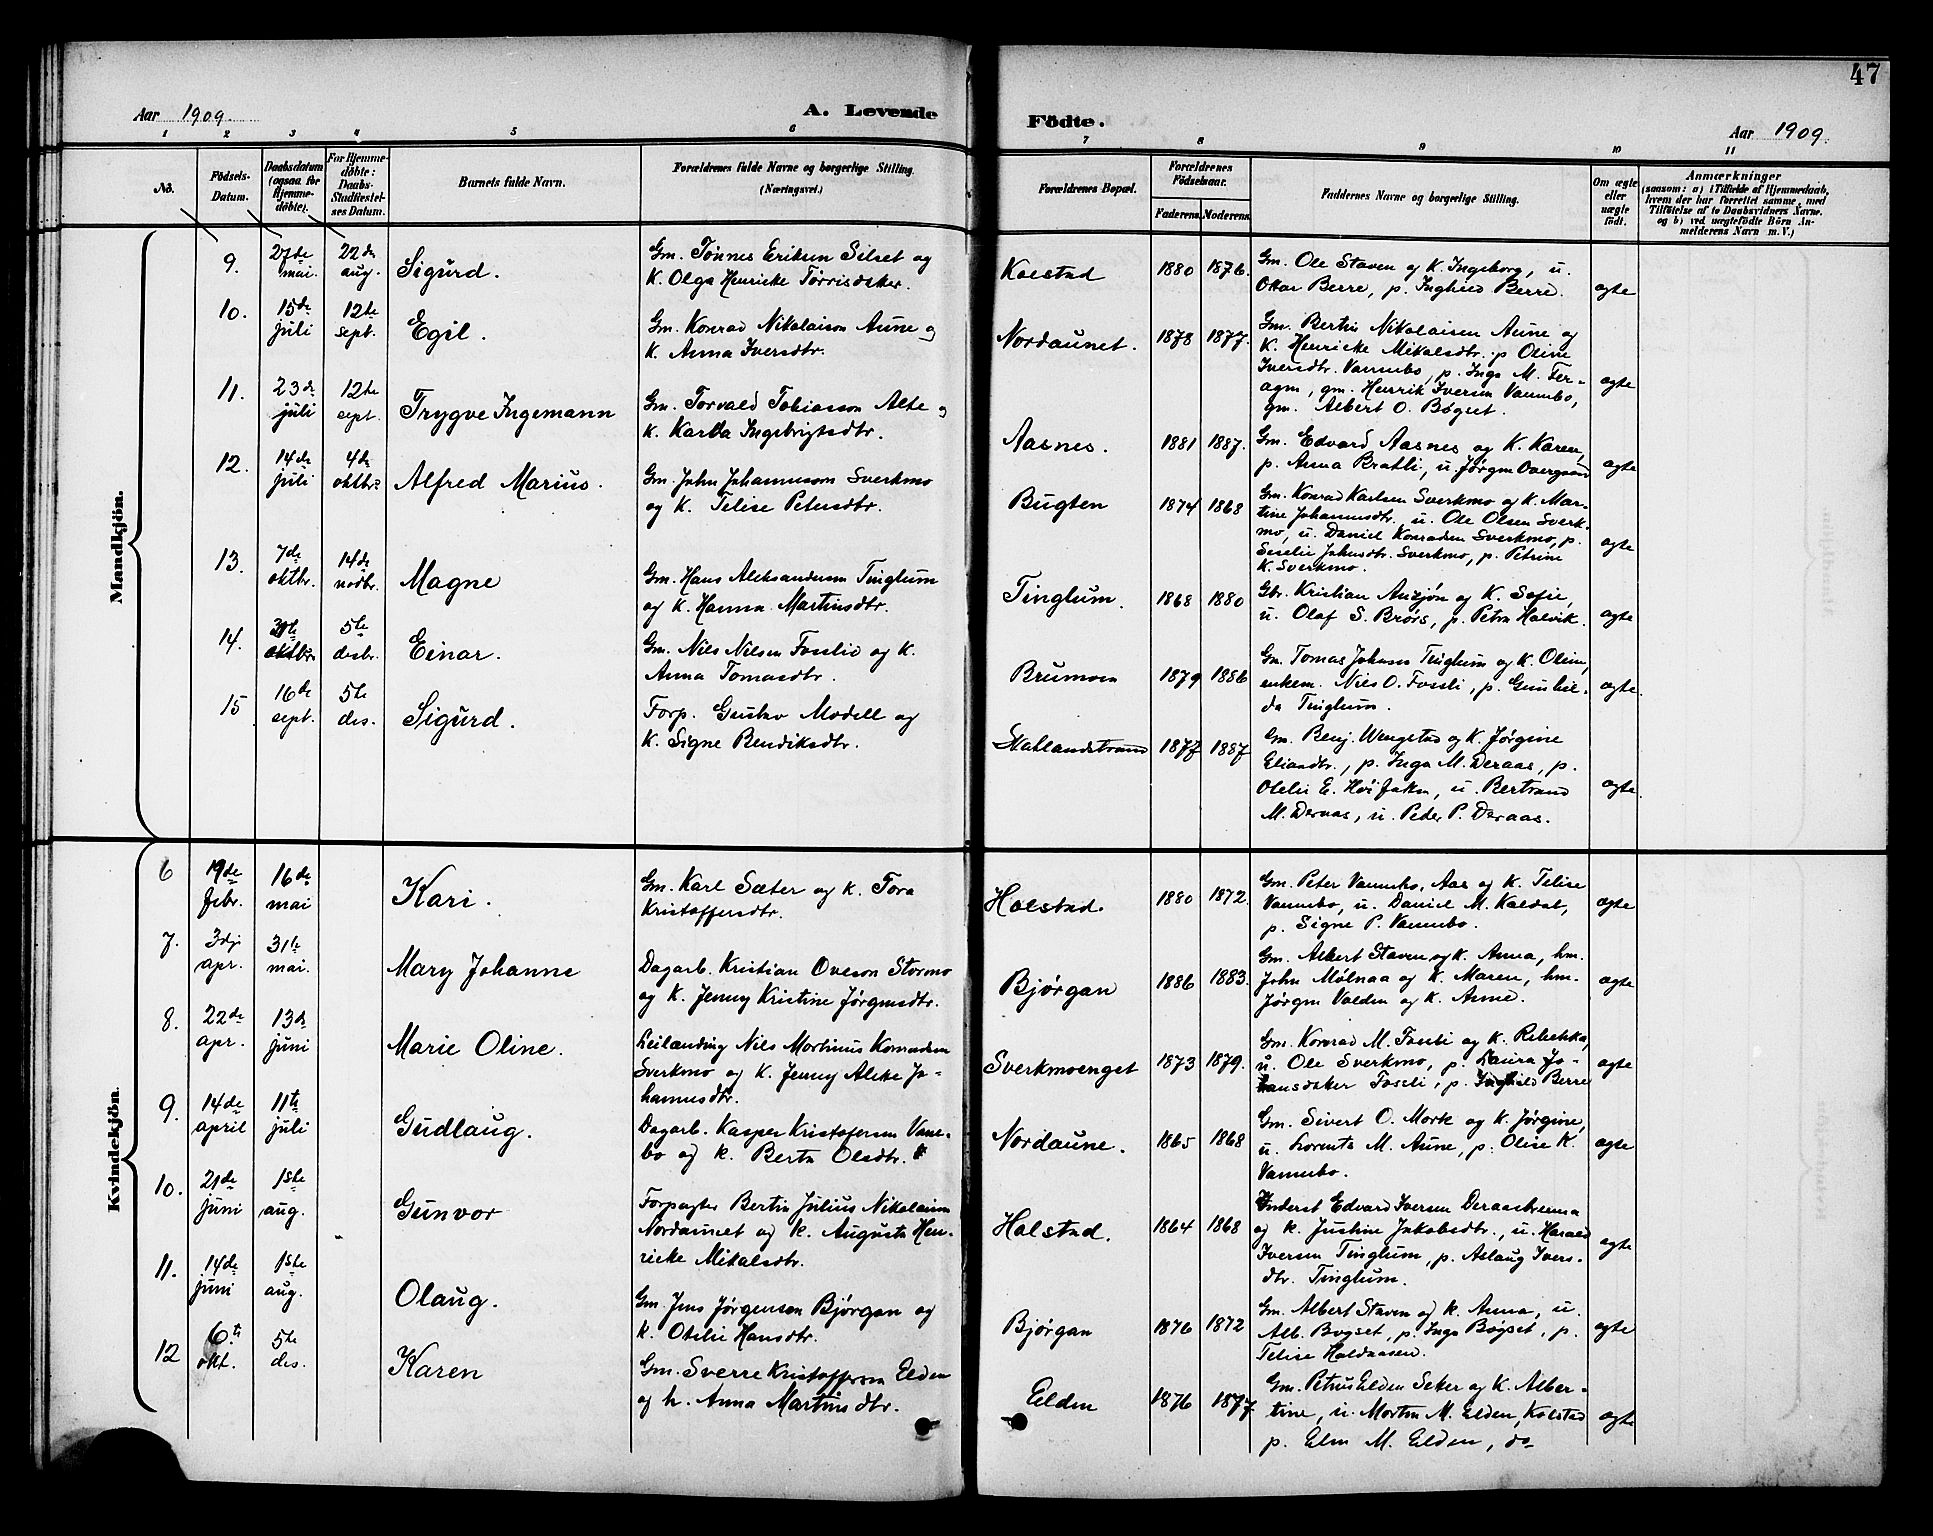 47
Aar 1909.
A. Levende
Födte.
Aar 1909.
1 2 3 4 5 6 7 8 9 10 11
No.
Födsels-
Datum.
Daabsdatum
(ogsaa for
Hjemme-
döbte).
For Hjemme-
döbte:
Daabs-
Stadfæstel-
ses Datum.
Barnets fulde Navn.
Forældrenes fulde Navne og borgerlige Stilling.
(Næringsvei.)
Forældrenes Bopæl.
Forældrenes
Födselsaar.
Faderens.
Moderens.
Faddernes Navne og borgerlige Stilling.
Om ægte
eller
uægte
födt.
Anmærkninger
(saasom: a) i Tilfælde af Hjemmedaab,
hvem der har forrettet samme, med
Tilföielse af to Daabsvidners Navne,
og b) ved uægtefödte Börn An-
melderens Navn m. V.)
Mandkjön.
9. 27de mai. 22de aug. Sigurd.
Gm. Tønnes Eriksen Silset og
K. Olga Henricke Tørrisdaker.
Kolstad 1880 1876.
Gm. Ole Staven og K. Ingeborg, u.
Ottar Berre, p. Inghild Berre.
ægte
10. 15de juli 12te sept. Egil.
Gm. Konrad Nikolaison Aune og
K. Anna Iversdtr.
Nordaunet. 1878 1877.
Gm. Bertin Nikolaisen Aune og
K. Henricke Mikalsdtr. p Oline
Iversdtr. Vannebo, p. Inga M. Fer-
agm, gm. Henrik Iversen Vannebo,
gm. Albert O. Bøgset.
ægte
11. 23de juli 12te sept. Trygve Ingemann
Gm. Torvald Tobiasson Alte og
K. Karla Ingebrigtsdtr.
Aasnes. 1881 1887.
Gm. Edvard Aasnes og K. Karen,
p. Anna Bratli, u. Jørgen Overgaard
ægte
12. 14de juli 4de oktbr. Alfred Marius.
Gm. John Johannesson Sverkmo
og K. Telise Petersdtr.
Bugten 1874 1868
Gm. Konrad Karlsen Sverkmo og K. Mar-
tine Johannesdtr. u. Ole Olsen Sverk-
mo, u. Daniel Konradsen Sverkmo, p.
Seselie Johnsdtr. Sverkmo, p. Petrine
K. Sverkmo.
ægte
13. 7de oktbr. 14de novbr. Magne
Gm. Hans Aleksandersen Tinglum
og K. Hanna Martinsdtr.
Tinglum. 1868 1880
Gbr. Kristian Auzjøn og K. Sofie,
u. Olaf S. Brørs, p. Petra Halvik.
ægte
14. 31te oktbr. 5te desbr. Einar.
Gm. Nils Nilsen Fosslid og K.
Anna Tomasdtr.
Brumoen 1879 1886
Gm. Tomas Johnsen Tinglum og K. Oline,
enkem. Nils O. Fossli, p. Gunhil-
da Tinglum.
ægte.
15 16de sept. 5te des. Sigurd.
Forp. Gustav Modell og
K. Signe Bendiksdtr.
Statlandstrand 1877 1887
Gm. Benj. Wengstad og K. Jørgine
Eliasdtr., p. Inga M. Deraas, p.
Otelie E. Høifaker, u. Bertrand
M. Deraas, u. Peder P. Deraas.
ægte
Kvindekjön.
6 19de febr. 16de mai Kari.
Gm. Karl Sæter og K. Tora
Kristoffersdtr.
Holstad. 1880 1872.
Gm. Peter Vannebo, Aas og K. Telise
Vannebo, u. Daniel M. Kaldal,
p. Signe P. Vannebo.
ægte
7. 3dje apr. 31te mai. Mary Johanne
Dagarb. Kristian Oveson Stormo
og K. Jenny Kristine Jørgensdtr.
Bjørgan 1886 1883.
Gm. Albert Staven og K. Anna, hm.
John Mølnaa og K. Maren, hm.
Jørgen Valden og K. Anne.
ægte
8. 22de apr. 13de juni Marie Oline.
Leilænding Nils Mortinus Konradsen
Sverkmo og K. Jenny Aleke Jo-
hannesdtr.
Sverkmoenget 1873 1879.
Gm. Konrad M. Fossli og K. Rebekka,
u. Ole Sverkmo, p. Laura Jo-
hansdaker Fossli, p. Inghild Berre
ægte
9. 14de april 11te juli Gudlaug.
Dagarb. Kasper Kristofersen Vanne-
bo og K. Berta Olsdtr.
Nordaune. 1865 1868
Gm. Sivert O. Mork og K. Jørgine,
u. Lorents M. Aune, p. Olise K.
Vannebo.
ægte
10. 21de juni 1ste aug. Gunvor
Forpagter Bertin Julius Nikolaisen
Nordaunet og K. Augusta Hen-
ricke Mikalsdtr.
Holstad. 1864 1868
Inderst Edvard Iversen Deraasbrenna
og K. Justine Jakobsdtr., u. Harald
Iversen Tinglum, p. Aslaug Ivers-
dtr. Tinglum.
ægte
11. 14de juni 1ste aug. Olaug.
Gm. Jens Jørgensen Bjørgan og
K. Otelie Hansdtr.
Bjørgan 1876 1872
Gm. Albert Staven og K. Anna, u.
Alb. Bøgset, p. Inga Bøgset, p.
Telise Haldaasen.
ægte
12 6te okt. 5te des. Karen
Gm. Sverre Kristoffersen Elden
og h. Anna Martinsdtr.
Elden 1876 1877.
Gm. Petrus Elden Seker og K. Alber-
tine, u. Morten M. Elden, Kolstad
p. Elen M. Elden, do
ægte